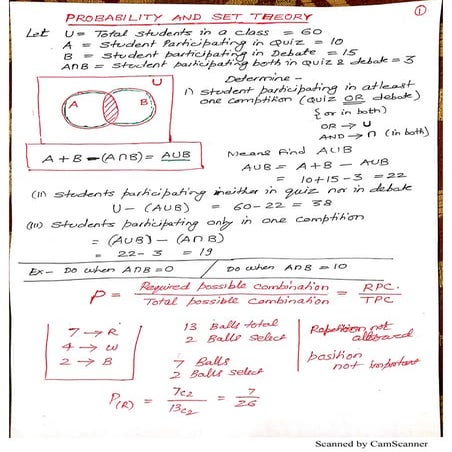 PROBABILITY AND SET THEORY
①
Let U = Total students in a class = 60
A = Student Participating in Quiz = 10
B = Student Participating in Debate = 15
A∩B = Student participating both in Quiz & debate = 3
Determine -
U
A
B
A + B - (A∩B) = A∪B
i) Student participating in atleast
one comptition (Quiz OR debate)
{or in both}
OR → U
AND → ∩ (in both)
Means Find A∪B
A∪B = A + B - A∪B
= 10+15-3 = 22
(ii) Students participating neither in quiz nor in debate
U - (A∪B) = 60-22 = 38
(iii) Students participating only in one comptition
= (A∪B) - (A∩B)
= 22-3 = 19
Ex- Do when A∩B=0 / Do when A∩B=10
P = Required possible combination / Total possible combination = RPC. / TPC
7 → R
4 → W
2 → B
13 Balls total
2 Balls select
7 Balls
2 Balls select
Repetition not
allowed
position
not important
P(R) = 7c2 / 13c2 = 7 / 26
Scanned by CamScanner